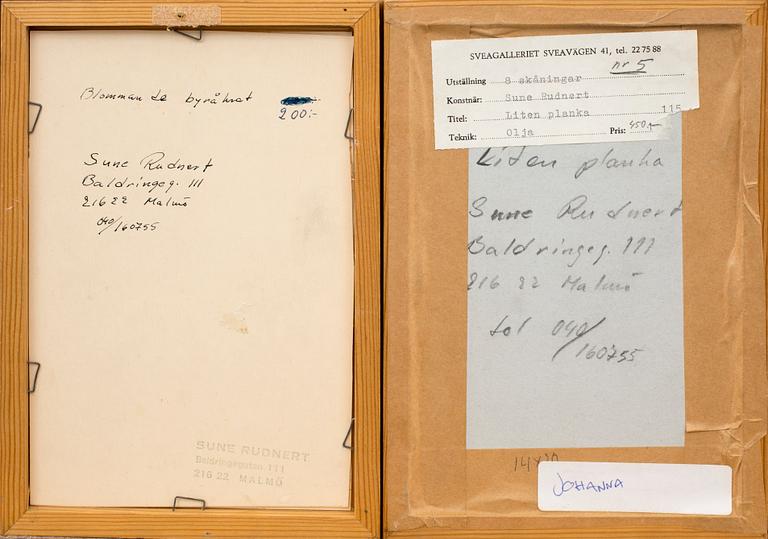 Blomman de byråkrat
200:-
Sune Rudnert
Baldringeg. 111
216 22 Malmö
040/160755
SUNE RUDNERT
Baldringegatan 111
216 22 MALMÖ
SVEAGALLERIET SVEAVÄGEN 41, tel. 22 75 88
nr 5
Utställning 8 skåningar
Konstnär: Sune Rudnert
Titel: Liten planka 115
Teknik: Olja Pris: 450:-
Liten planka
Sune Rudnert
Baldringeg. 111
216 22 Malmö
tel 040/160755
JOHANNA